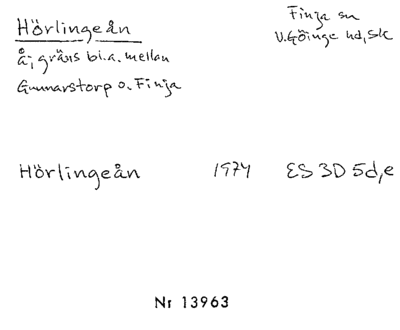 Hörlingeån
Finja sn
V.Göinge hd, Sk
å; gräns bl.a. mellan
Gunnarstorp o. Finja
Hörlingeån 1974 ES 3D 5d,e
Nr 13963